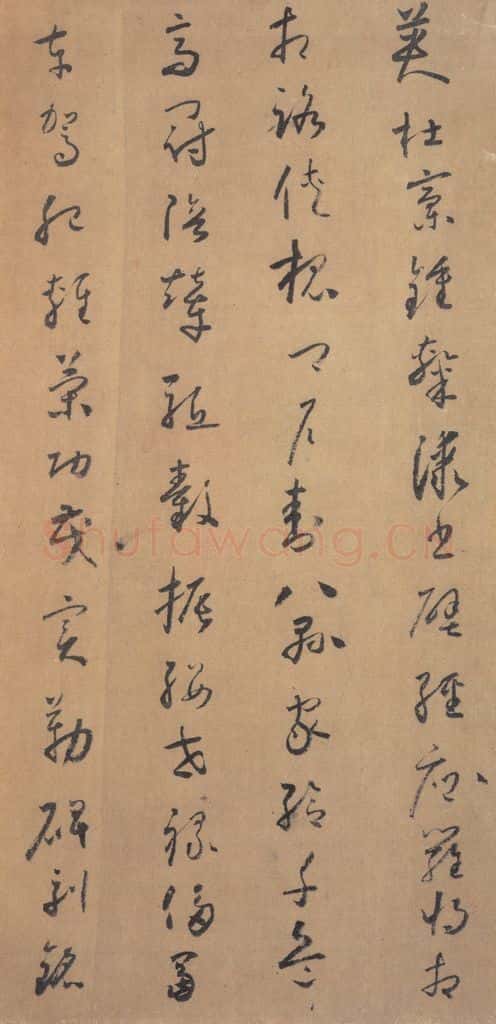 英杜稾鍾隸漆書壁經府羅將相
相路俠槐卿戶封八縣家給千兵
高冠陪輦驅轂振纓世祿侈富
車駕肥輕策功茂實勒碑刻銘
shufawang.cn